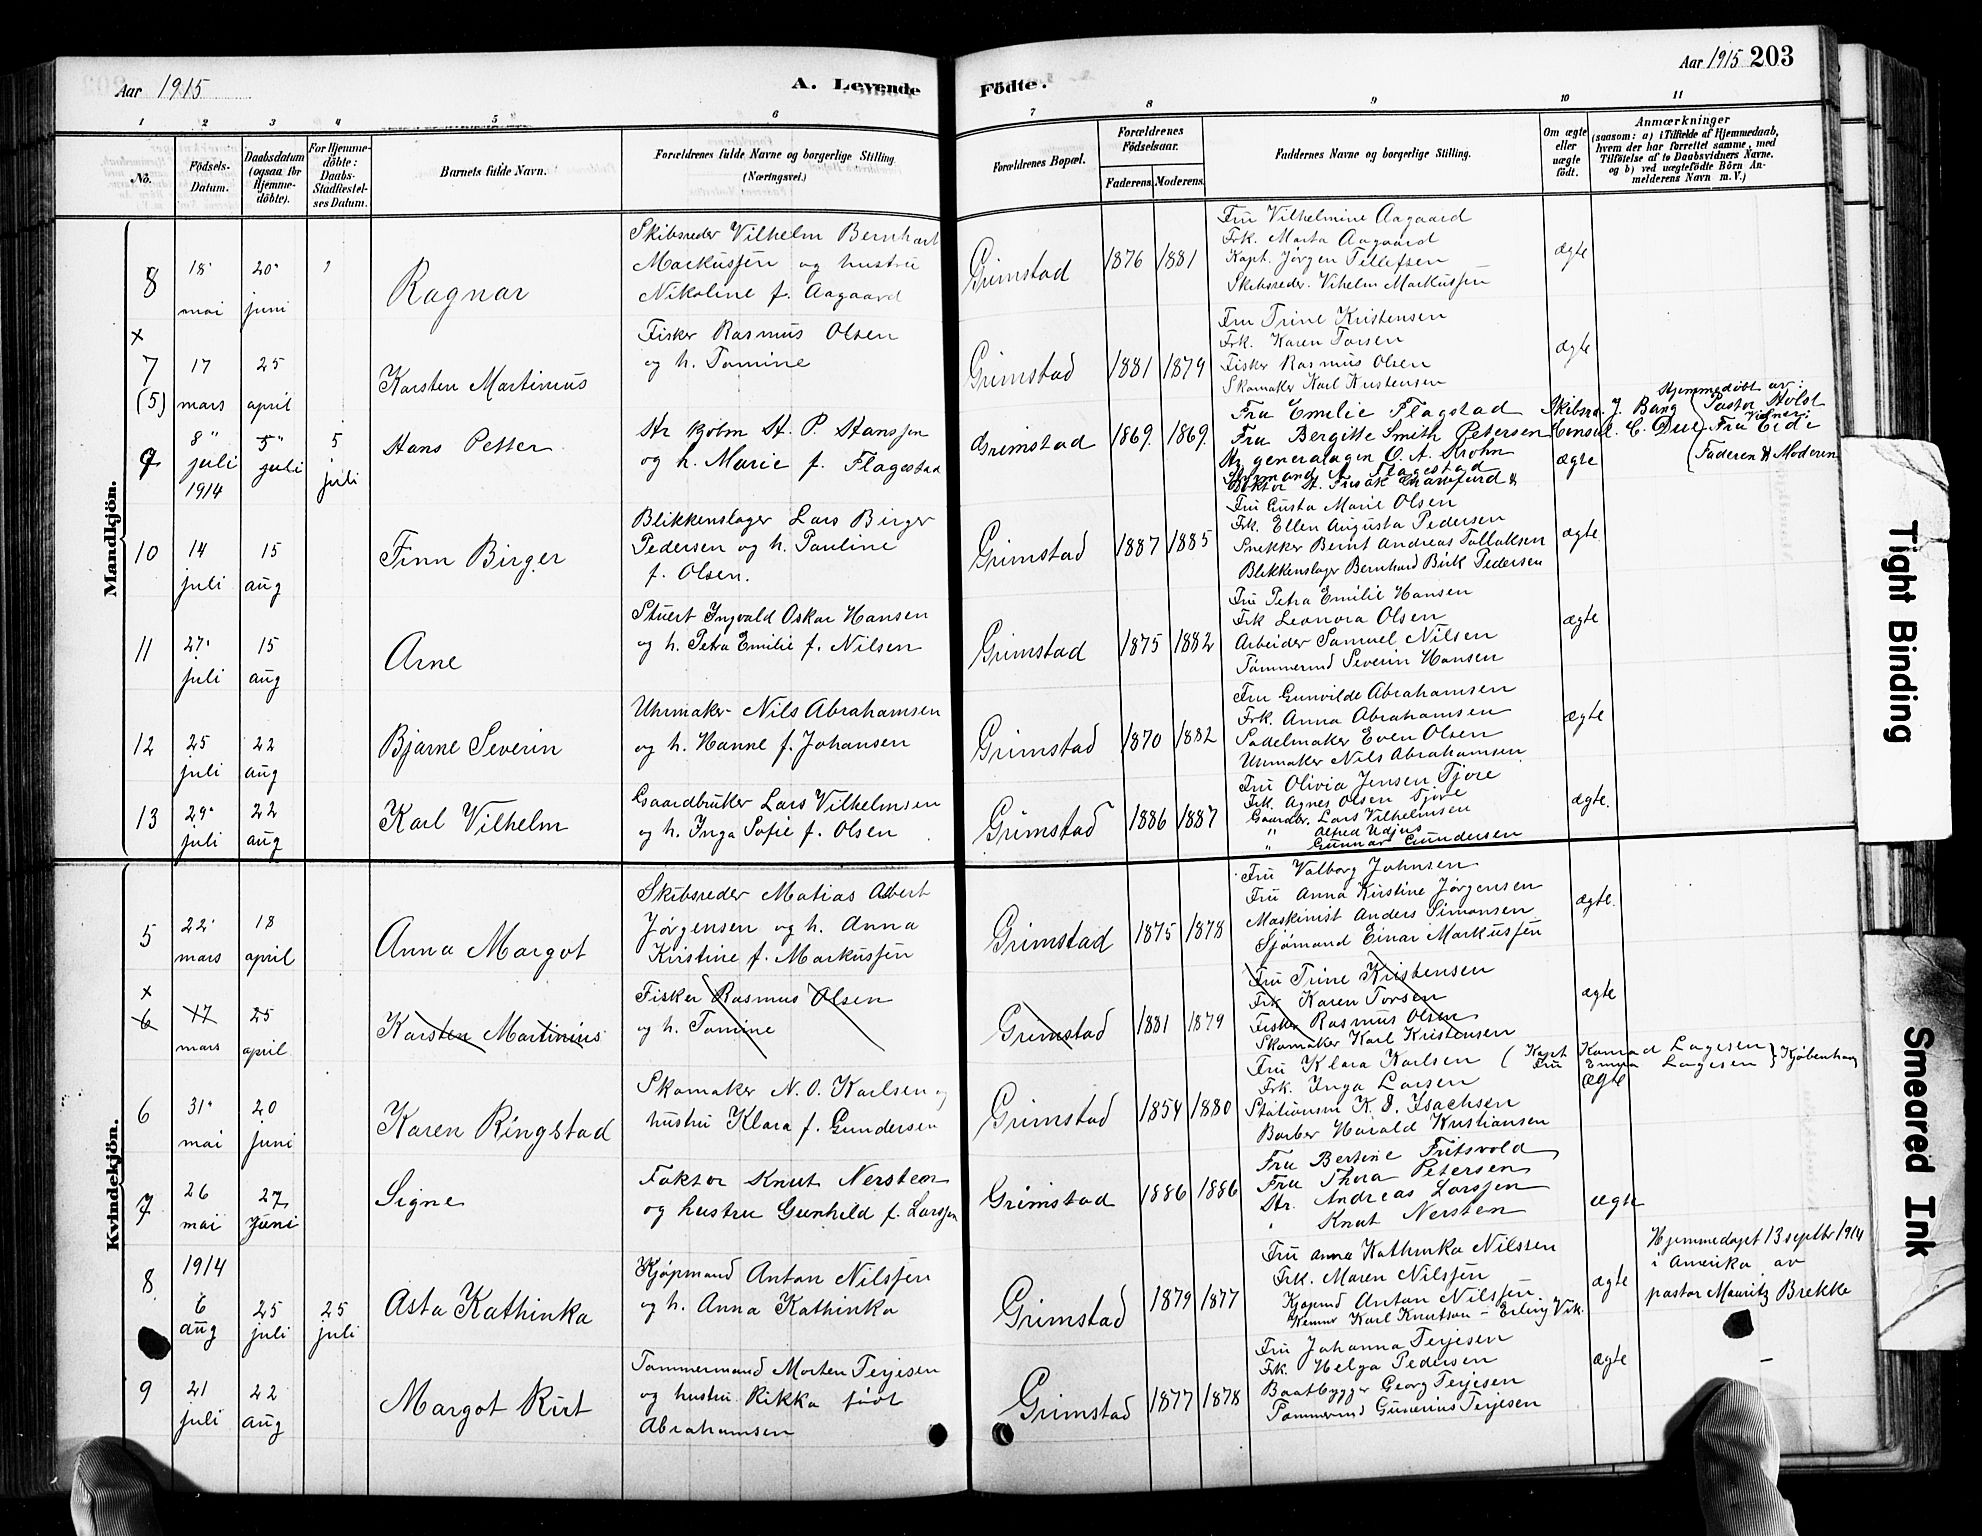 Aar 1915
A. Levende
Födte.
Aar 1915 203
1 2 3 4 5 6 7 8 9 10 11
No.
Födsels-
Datum.
Daabsdatum
(ogsaa for
Hjemme-
döbte).
For Hjemme-
döbte:
Daabs-
Stadfæstel-
ses Datum.
Barnets fulde Navn.
Forældrenes fulde Navne og borgerlige Stilling.
(Næringsvei.)
Forældrenes Bopæl.
Forældrenes
Födselsaar.
Faderens. Moderens.
Faddernes Navne og borgerlige Stilling.
Om ægte
eller
uægte
födt.
Anmærkninger
(saasom: a) i Tilfælde af Hjemmedaab,
hvem der har forrettet samme, med
Tilföielse af to Daabsvidners Navne,
og b) ved uægtefödte Börn An-
melderens Navn m. V.)
Mandkjön.
8
18
mai
20
juni
Ragnar
Skibsreder Vilhelm Bernhart
Markussen og hustru
Nikoline f. Aagaard
Grimstad 1876 1881
Fru Vilhelmine Aagaard
Frk. Marta Aagaard
Kapt. Jørgen Tellefsen
Skibsreder. Vihelm Markussen
ægte
x
7
(5)
17
mars
25
april
Karsten Martinius
Fisker Rasmus Olsen
og h. Tomine
Grimstad 1881 1879
Fru Trine Kristensen
Frk. Karen Torsen
Fisker Rasmus Olsen
Skomaker Karl Kristensen
ægte
9
8
juli
1914
5
juli
5
juli
Hans Petter
og h. Marie f. Flagestad
Grimstad 1869. 1869.
Fru Emilie Flagstad Skibsr. J. Bang
Fru Bergitte Smith Petersen Consul. C. Due
ægte
Hjemmedöbt av:
Pastor Holst
Fru Eide
Faderen & Moderen
10
14
juli
15
aug
Finn Birger
Blikkenslager Lars Birger
Pedersen og h. Pauline
f. Olsen.
Grimstad 1887 1885
Fru Gusta Marie Olsen
Frk. Ellen Augusta Pedersen
Snekker Bernt Andreas Tallaksen
Blikkenslager Bernhard Birk Pedersen
ægte
11
27
juli
15
aug
Arne
Stuert Ingvald Oskar Hansen
og h. Petra Emilie f. Nilsen
Grimstad 1875 1882
Fru Petra Emilie Hansen
Frk Leonora Olsen
Arbeider Samuel Nilsen
Tömmermd Severin Hansen
ægte
12
25
juli
22
aug
Bjarne Severin
Uhrmaker Nils Abrahamsen
og h. Hanne f. Johansen
Grimstad 1870 1882
Fru Gunvilde Abrahamsen
Frk. Anna Abrahamsen
Sadelmaker Even Olsen
Uhrmaker Nils Abrahamsen
ægte
13
29
juli
22
aug
Karl Vilhelm
Gaardbruker Lars Vilhelmsen
og h. Inga Sofie f. Olsen
Grimstad 1886 1887
Fru Olivia Jensen Fjore
Frk. Agnes Olsen Fjore
Gaardbr. Lars Vilhelmsen
" Alfred Udjus
" Gunnar Gundersen
ægte.
Kvindekjön.
5
22
mars
18
april
Anna Margot
Skibsreder Matias Albert
Jørgensen og h. Anna
Kirstine f. Markussen
Grimstad 1875 1878
Fru Valborg Johnsen
Fru Anna Kirstine Jørgensen
Maskinist Anders Simonsen
Sjömand Einar Markussen
ægte.
x
6
17
mars
25
april
Karsten Martinius
Fisker Rasmus Olsen
og h. Tomine
Grimstad 1881 1879
Fru Trine Kristensen
Frk Karen Torsen
Fisker Rasmus Olsen
Skomaker Karl Kristensen
ægte
6
31
mai
20
juni
Karen Ringstad
Skomaker N. O. Karlsen og
hustru Klara f. Gundersen
Grimstad 1854 1880
Fru Klara Karlsen ( Kapt Konrad Lagesen } Kjøbenhavn
Fru Emma Lagesen
Frk. Inga Larsen
Stationsm K. O. Isachsen
Barber Harald Kristiansen
ægte
7
26
mai
27
juni
Signe
Faktor Knut Nersten
og hustru Gunhild f. Larssen
Grimstad 1886 1886
Fru Bertine Fritsvold
Fru Thora Petersen
Hr. Andreas Larssen
" Knut Nersten
ægte
8
1914
6
aug
25
juli
25
juli
Asta Kathinka
Kjøpmand Anton Nilssen
og h. Anna Kathinka
Grimstad 1879 1877
Fru Anna Kathinka Nilssen
Frk. Maren Nilssen
Kjøpmd Anton Nilssen
Karl Knutson - Erling Vik.
ægte
Hjemmedøpt 13 septbr 1914
i Amerika av
pastor Mauritz Brekke
9
21
juli
22
aug
Margot Rut
Tømmermand Morten Terjesen
og hustru Rikka född
Abrahamsen
Grimstad 1877 1878
Fru Johanna Terjesen
Frk. Helga Pedersen
Baatbygger Georg Terjesen
Tömmermd Gunerius Terjesen
ægte
Tight Binding
Smeared Ink